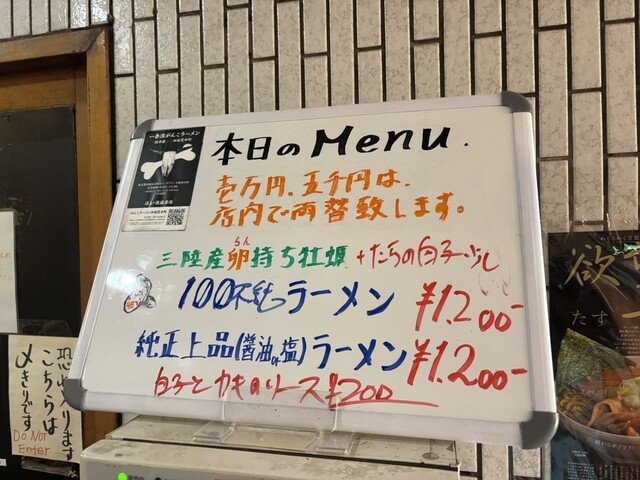 一条流がんこラーメン
本日のMenu.
壱万円、五千円は、
店内で両替致します。
らん
三陸産卵持ち牡蠣 +たらの白子少し
100不純ラーメン ¥1.200-
純正上品(醤油or塩)ラーメン ¥1.200-
白子とカキのソース ¥200
恐れ入ります
こちらは
〆きりです
Do Not
Enter
欲
たす